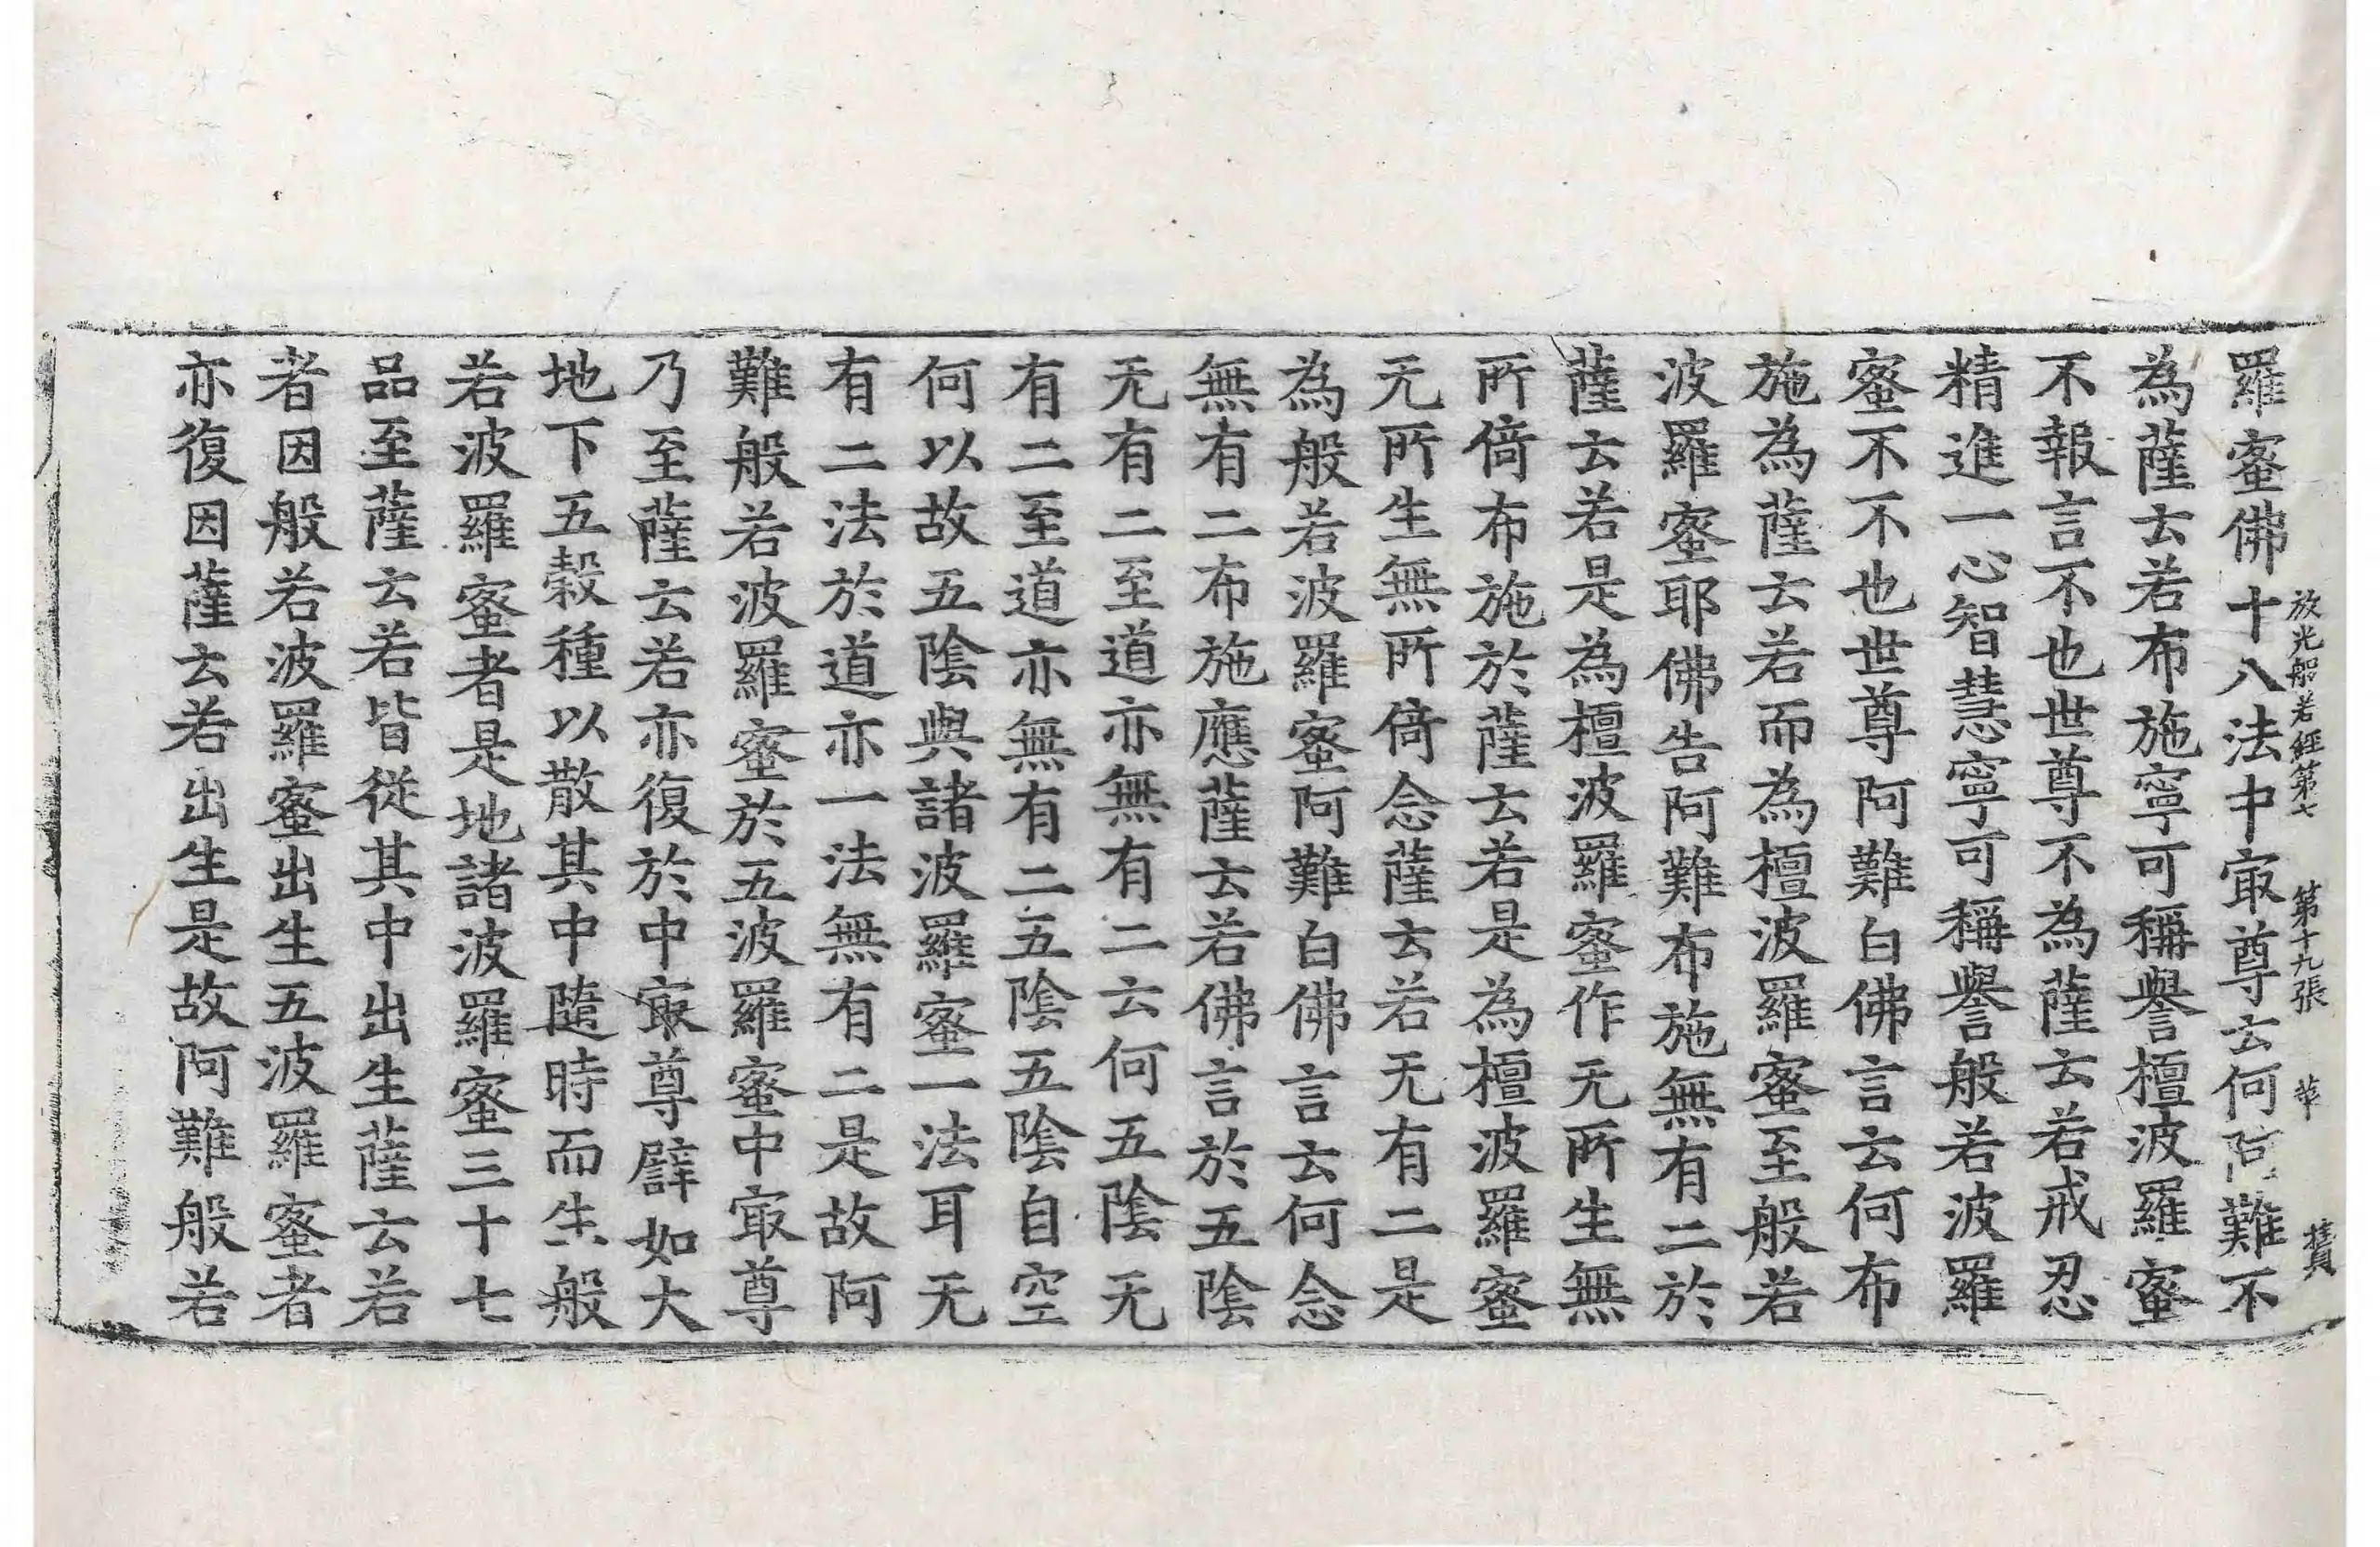 放光般若經第七 第十九張 華
羅蜜佛十八法中㝡尊云何阿難不
為薩云若布施寧可稱譽檀波羅蜜
不報言不也世尊不為薩云若戒忍
精進一心智慧寧可稱譽般若波羅
蜜不不也世尊阿難白佛言云何布
施為薩云若而為檀波羅蜜至般若
波羅蜜耶佛告阿難布施無有二於
薩云若是為檀波羅蜜作无所生無
所倚布施於薩云若是為檀波羅蜜
无所生無所倚念薩云若无有二是
為般若波羅蜜阿難白佛言云何念
無有二布施應薩云若佛言於五陰
无有二至道亦無有二云何五陰无
有二至道亦無有二五陰五陰自空
何以故五陰與諸波羅蜜一法耳无
有二法於道亦一法無有二是故阿
難般若波羅蜜於五波羅蜜中㝡尊
乃至薩云若亦復於中㝡尊譬如大
地下五穀種以散其中隨時而生般
若波羅蜜者是地諸波羅蜜三十七
品至薩云若皆從其中出生薩云若
者因般若波羅蜜出生五波羅蜜者
亦復因薩云若出生是故阿難般若